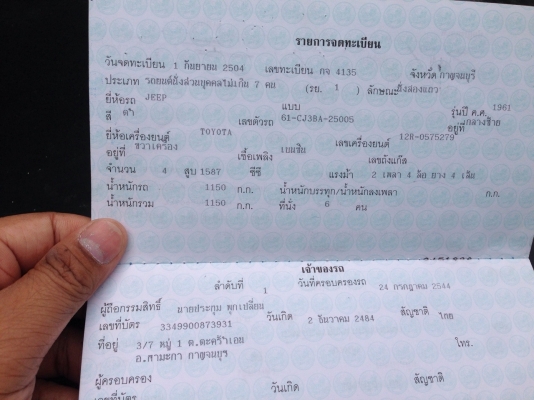 รายการจดทะเบียน
วันจดทะเบียน 1 กันยายน 2504 เลขทะเบียน กจ 4135 จังหวัด กาญจนบุรี
ประเภท รถยนต์นั่งส่วนบุคคลไม่เกิน 7 คน (รย. 1) ลักษณะ นั่งสองแถว
ยี่ห้อรถ JEEP แบบ รุ่นปี ค.ศ. 1961
สี ดำ เลขตัวรถ 61-CJ3BA-25005 อยู่ที่ กลางซ้าย
ยี่ห้อเครื่องยนต์ TOYOTA เลขเครื่องยนต์ 12R-0575279
อยู่ที่ ขวาเครื่อง เชื้อเพลิง เบนซิน เลขถังแก๊ส
จำนวน 4 สูบ 1587 ซีซี แรงม้า 2 เพลา 4 ล้อ ยาง 4 เส้น
น้ำหนักรถ 1150 ก.ก. น้ำหนักบรรทุก/น้ำหนักลงเพลา ก.ก.
น้ำหนักรวม 1150 ก.ก. ที่นั่ง 6 คน
เจ้าของรถ
ลำดับที่ 1 วันที่ครอบครองรถ 24 กรกฎาคม 2544
ผู้ถือกรรมสิทธิ์ นายประกุม พุกเปลี่ยน
เลขที่บัตร 3349900873931 วันเกิด 2 ธันวาคม 2484 สัญชาติ ไทย
ที่อยู่ 3/7 หมู่ 1 ต.ตะคร้ำเอน โทร.
อ.ท่ามะกา กาญจนบุรี
ผู้ครอบครอง
เลขที่บัตร วันเกิด สัญชาติ